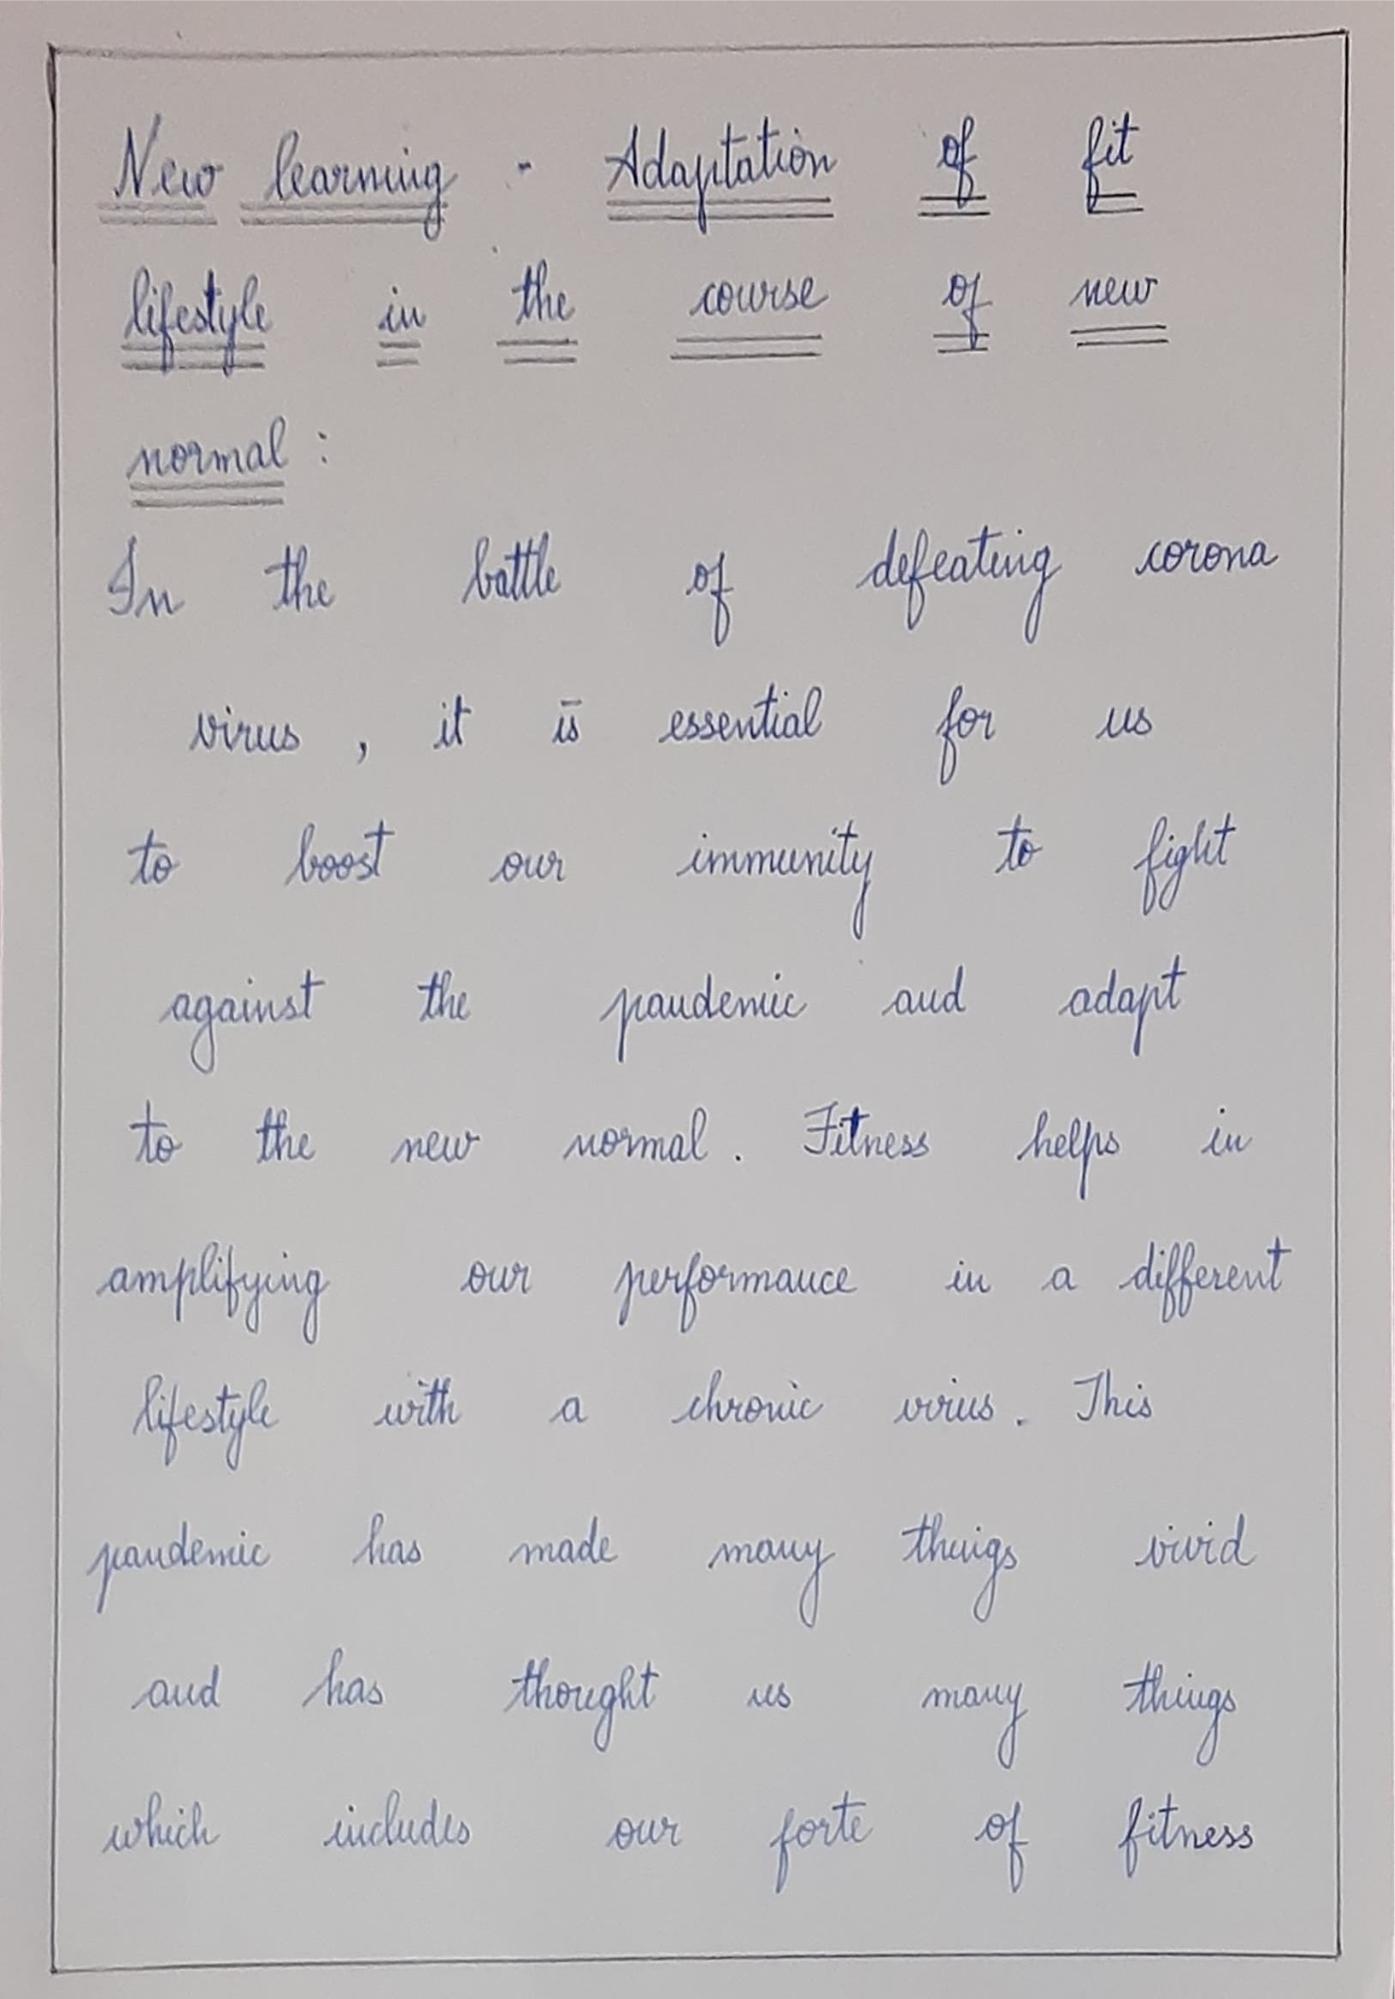 New learning - Adaptation of fit
lifestyle in the course of new
normal :
In the battle of defeating corona
virus , it is essential for us
to boost our immunity to fight
against the pandemic and adapt
to the new normal . Fitness helps in
amplifying our performance in a different
lifestyle with a chronic virus . This
pandemic has made many things vivid
and has thought us many things
which includes our forte of fitness